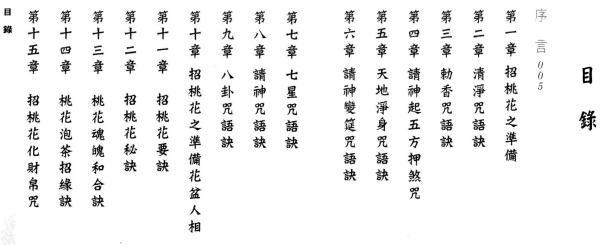 目錄
序言 005
第一章 招桃花之準備
第二章 清淨咒語訣
第三章 勅香咒語訣
第四章 請神起五方押煞咒
第五章 天地淨身咒語訣
第六章 請神變筳咒語訣
第七章 七星咒語訣
第八章 請神咒語訣
第九章 八卦咒語訣
第十章 招桃花之準備花盆人相
第十一章 招桃花要訣
第十二章 招桃花秘訣
第十三章 桃花魂魄和合訣
第十四章 桃花泡茶招緣訣
第十五章 招桃花化財帛咒
目錄